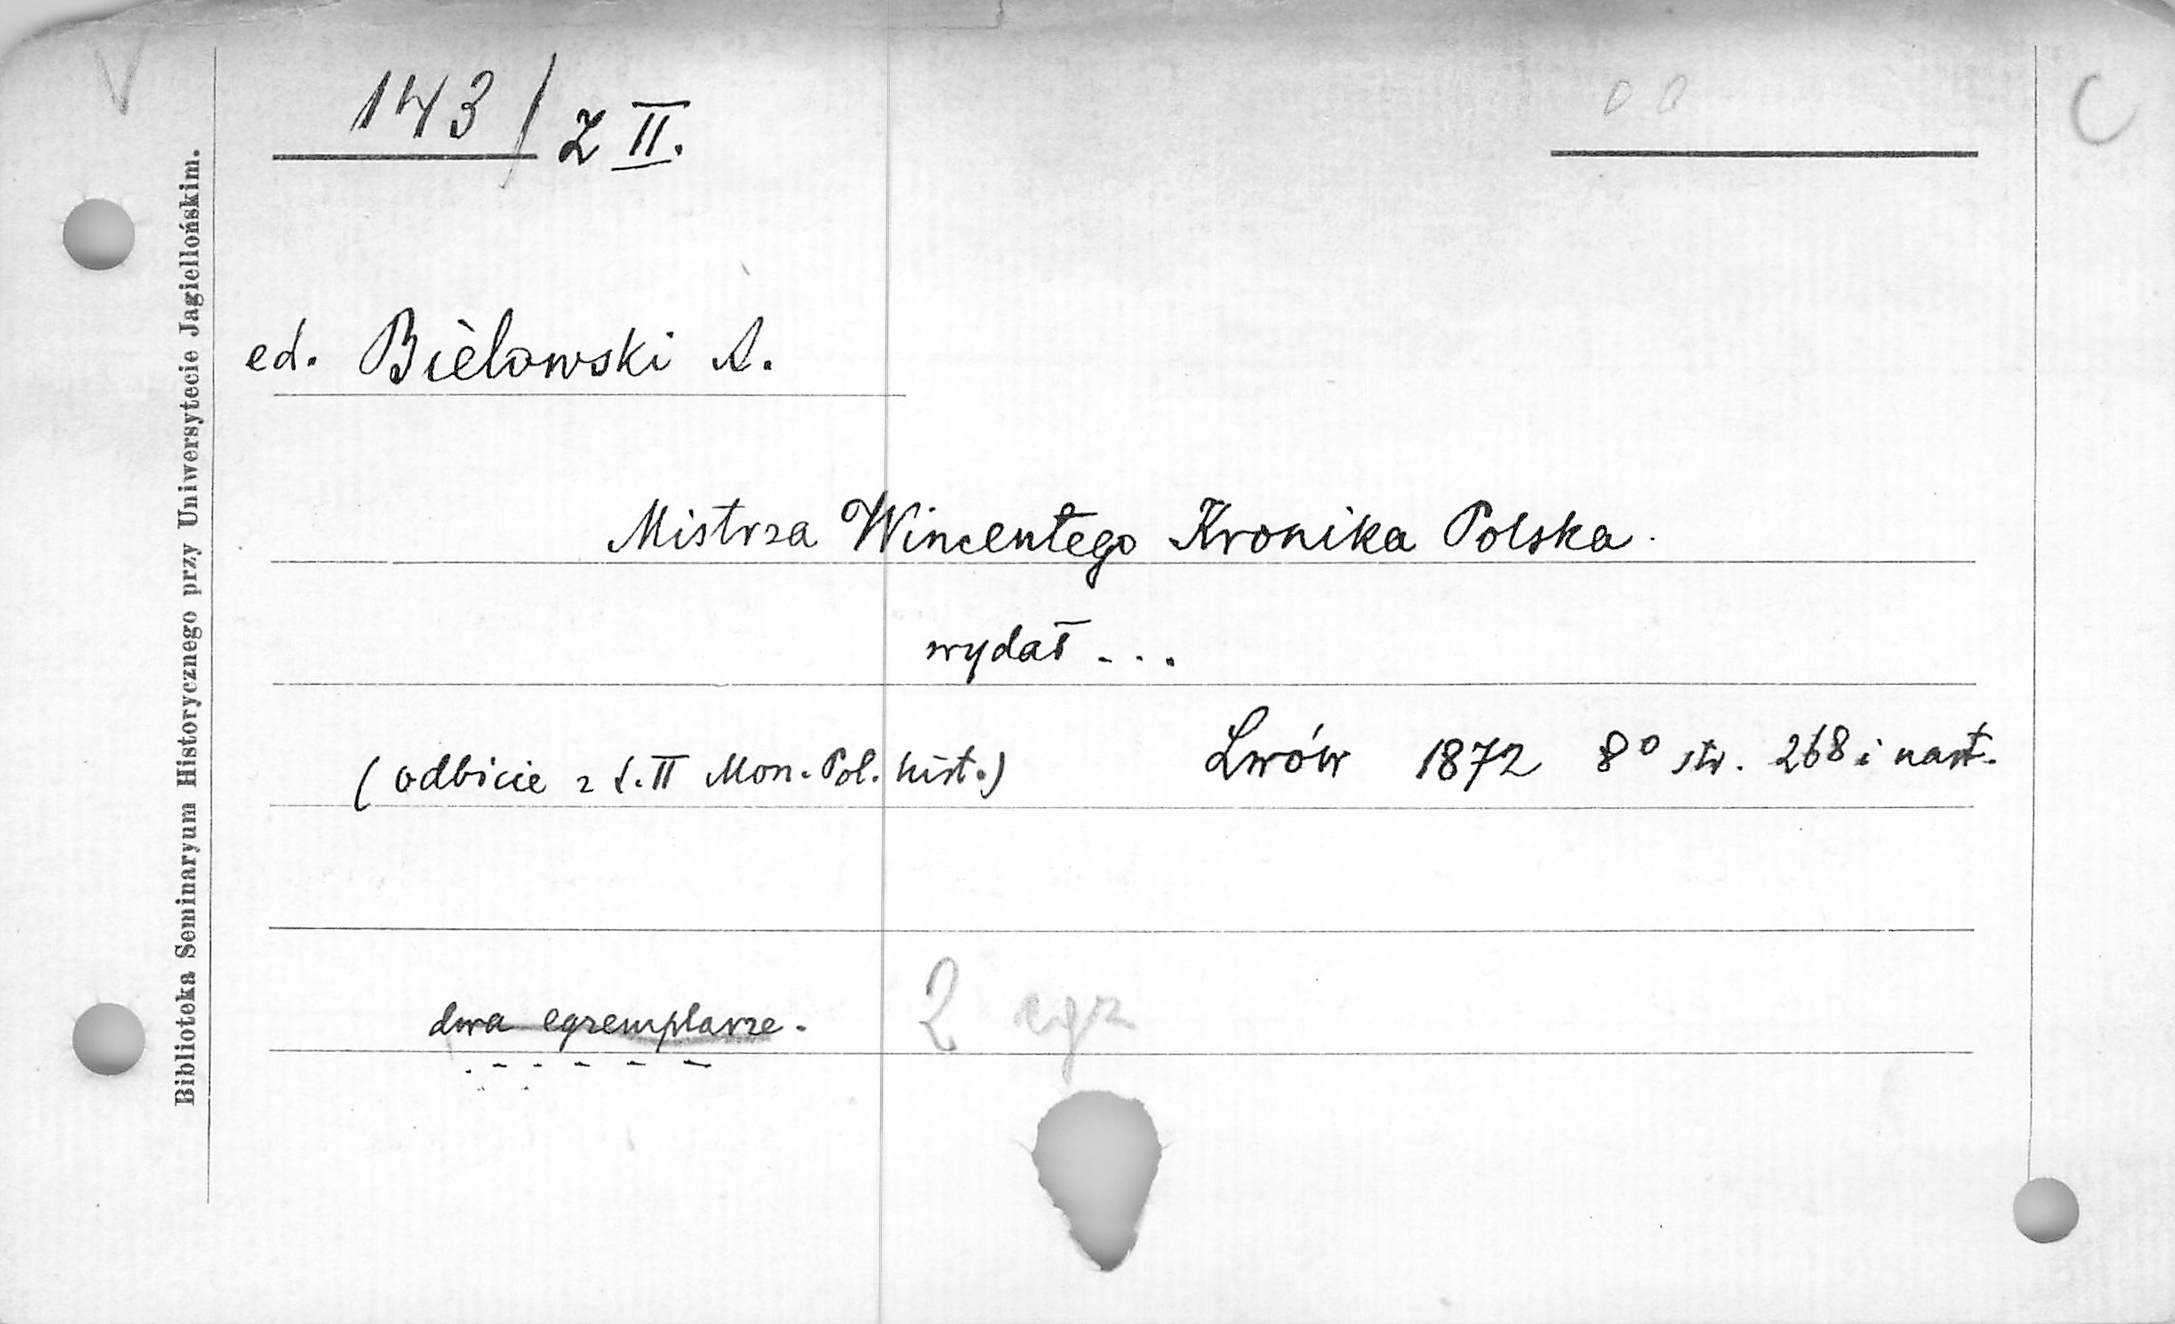 V
C
143/Z II.
ed. Bielowski A.
Mistrza Wincentego Kronika Polska.
wydał...
(odbicie z t. II Mon. Pol. hist.) Lwów 1872 8° str. 268 i nast.
dwa egzemplarze. 2 egz
Biblioteka Seminaryum Historycznego przy Uniwersytecie Jagiellońskim.